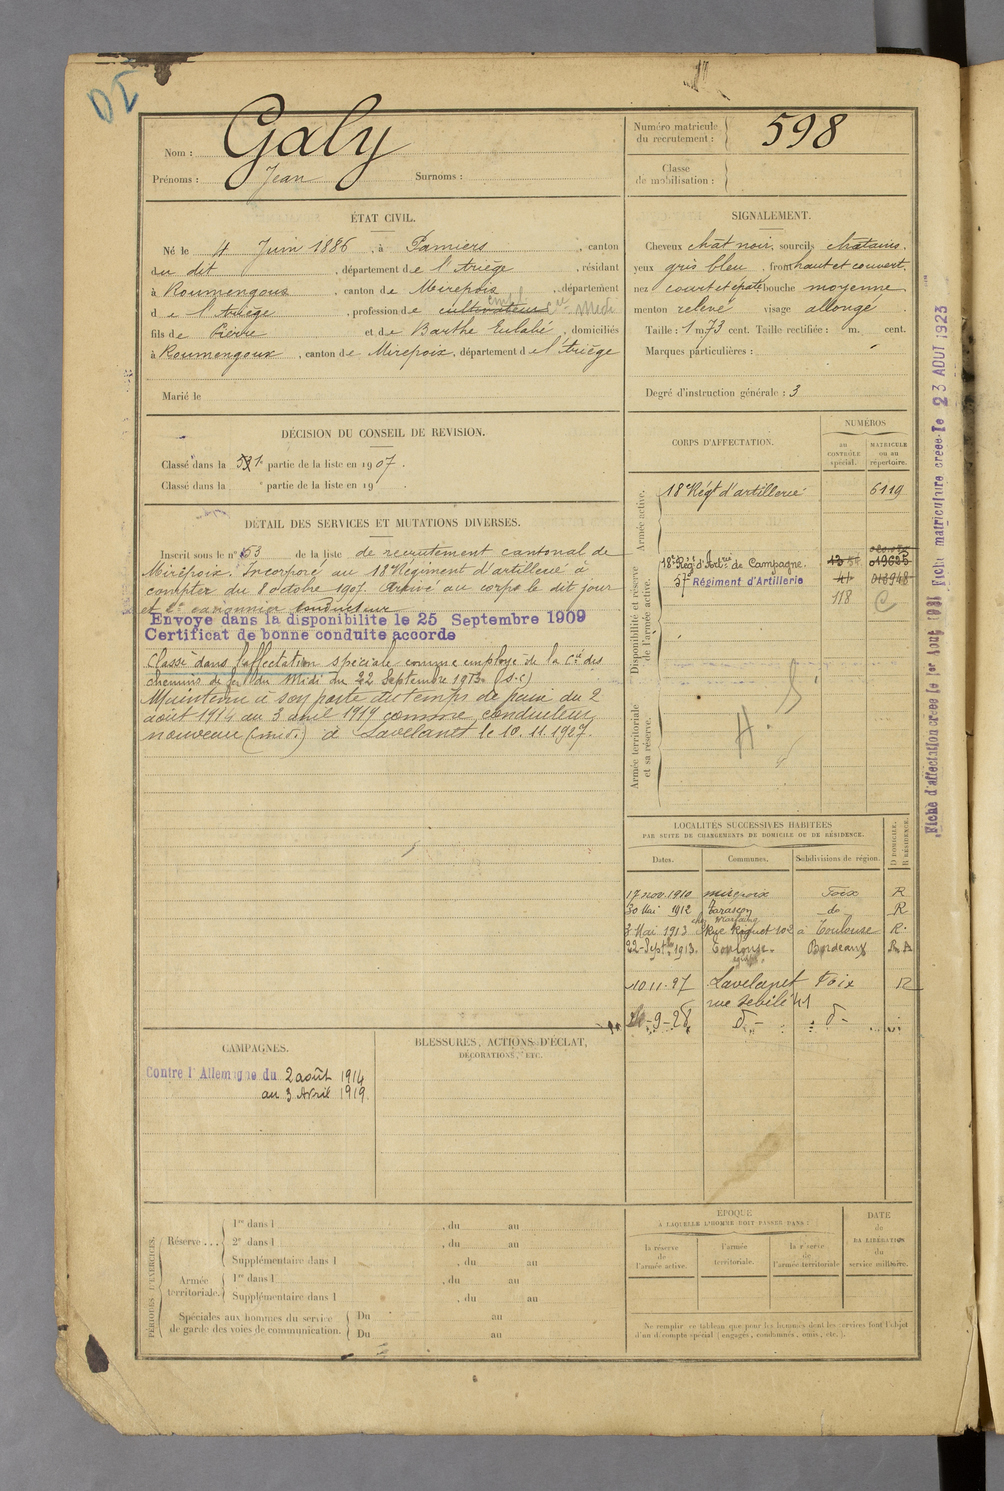 Nom : Galy
Prénoms : Jean Surnoms :
Numéro matricule du recrutement : 598
Classe de mobilisation :
ÉTAT CIVIL.
Né le 4 Juin 1886, à Pamiers, canton
du dit, département de l'Ariège, résidant
à Roumengoux, canton de Mirepoix, département
de l'Ariège, profession de cultivateur
fils de Pierre et de Barthe Eulalie, domiciliés
à Roumengoux, canton de Mirepoix, département de l'Ariège
Marié le
SIGNALEMENT.
Cheveux chât noir, sourcils chatains.
yeux gris bleu, front haut et couvert,
nez court et épaté bouche moyenne
menton relevé visage allongé
Taille : 1 m 73 cent. Taille rectifiée : m. cent.
Marques particulières :
Degré d'instruction générale : 3
DÉCISION DU CONSEIL DE REVISION.
Classé dans la 1e partie de la liste en 1907.
Classé dans la partie de la liste en 19
DÉTAIL DES SERVICES ET MUTATIONS DIVERSES.
Inscrit sous le n° 53 de la liste de recrutement cantonal de
Mirepoix. Incorporé au 18e Régiment d'artillerie à
compter du 8 octobre 1907. Arrivé au corps le dit jour
et 2e canonnier conducteur
Envoye dans la disponibilite le 25 Septembre 1909
Certificat de bonne conduite accorde
Classé dans l'affectation spéciale comme employé de la Cie des
chemins de fer du Midi du 22 Septembre 1913. (S.C)
Maintenu à son poste du temps de paix du 2
août 1914 au 3 avril 1919 comme conducteur
nouveau (midi) à Lavelanet le 10.11.1927.
CORPS D'AFFECTATION.
NUMÉROS
au CONTRÔLE spécial.
MATRICULE ou au répertoire.
Armée active.
18e Régt d'artillerie 6119
Disponibilité et réserve de l'armée active.
18e Rég. d'Artrie de Campagne. 019635
57e Régiment d'Artillerie 41 016948
118 C
Armée territoriale et sa réserve.
H.
LOCALITÉS SUCCESSIVES HABITÉES
PAR SUITE DE CHANGEMENTS DE DOMICILE OU DE RÉSIDENCE.
Dates. Communes. Subdivisions de région. D DOMICILE. R RÉSIDENCE.
17 nov. 1910 Mirepoix Foix R
30 Mai 1912 Tarascon do R
3 Mai 1913 Rue Roquet 102 à Toulouse R.
22-Septbre 1913. Toulouse. Bordeaux R A
10.11.27 Lavelanet Foix R
rue Sebile 41
-9-28 d°- d°-
CAMPAGNES.
Contre l'Allemagne du 2 août 1914
au 3 Avril 1919.
BLESSURES, ACTIONS D'ÉCLAT,
DÉCORATIONS, ETC.
PÉRIODES D'EXERCICES.
Réserve ...
1re dans l , du au
2e dans l , du au
Supplémentaire dans l , du au
Armée territoriale.
1re dans l , du au
Supplémentaire dans l , du au
Spéciales aux hommes du service de garde des voies de communication.
Du au
Du au
ÉPOQUE
À LAQUELLE L'HOMME DOIT PASSER DANS :
la réserve de l'armée active.
l'armée territoriale.
la réserve de l'armée territoriale
DATE de LA LIBÉRATION du service militaire.
Ne remplir ce tableau que pour les hommes dont les services font l'objet
d'un décompte spécial (engagés, condamnés, omis, etc.).
Fiche d'affectation créée le 1er Aout 1931 Fiche matriculaire creee le 23 AOUT 1923